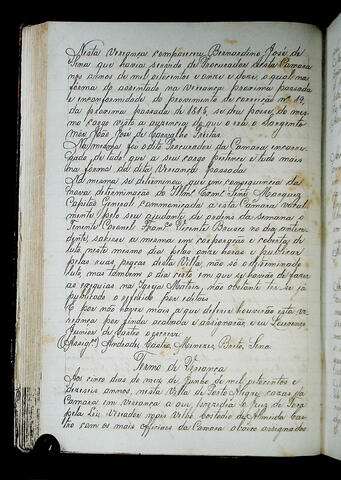 Nesta Vereança compareceu Bernardino José de
Sena que havia servido de Procurador desta Camara
nos annos de mil oitocentos e onze e doze, o qual na
forma do assentado na vereança proxima passada
e inconformidade do provimento de correição nº 19,
da proxima passada de 1815, se deu posse, do mes
mo cargo visto a auzencia do que o era o Sargento
mór João José de Carvalho Freitas
Na mesma foi o dito Procurador da Camara, encarre
gado de tudo que a seu cargo pertence e tudo mais
na forma da dita Vereança passada
Na mesma se determinou que em consequencia da
nova determinação do Illmo. Exmo. Snr. Marquez
Capitão General communicada a esta Camara verbal
mente pelo seu ajudante de ordens da semana o
Tenente Coronel Franco. Vicente no dia antece
dente, sahisse a mesma em corporação e coberta de
luto neste mesmo dia pelas onze horas a publicar
pelas ruas desta Villa, não só o determinado
luto, mas tambem o dia certo em que se havião de fazer
as exequias na Igreja Matriz, não obstante ter-se já
publicado o referido por editaes
E por não haver mais a que deferir houverão esta ve
reança por finda acabada e assignarão, eu Lourenço
Junior de Castro o escrevi
(Assigos) Andrade, Castro, Menezes, Brito, Sena.
Termo de Vereança
Aos cinco dias do mez de Junho de mil oitocentos e
dezeseis annos, nesta Villa de Porto Alegre, cazas da
Camara em vereança a que prezedia o Juiz de Fora
pela Lei Vereador mais velho Custodio de Almeida Cas
tro com os mais officiaes da Camara abaixo assignados